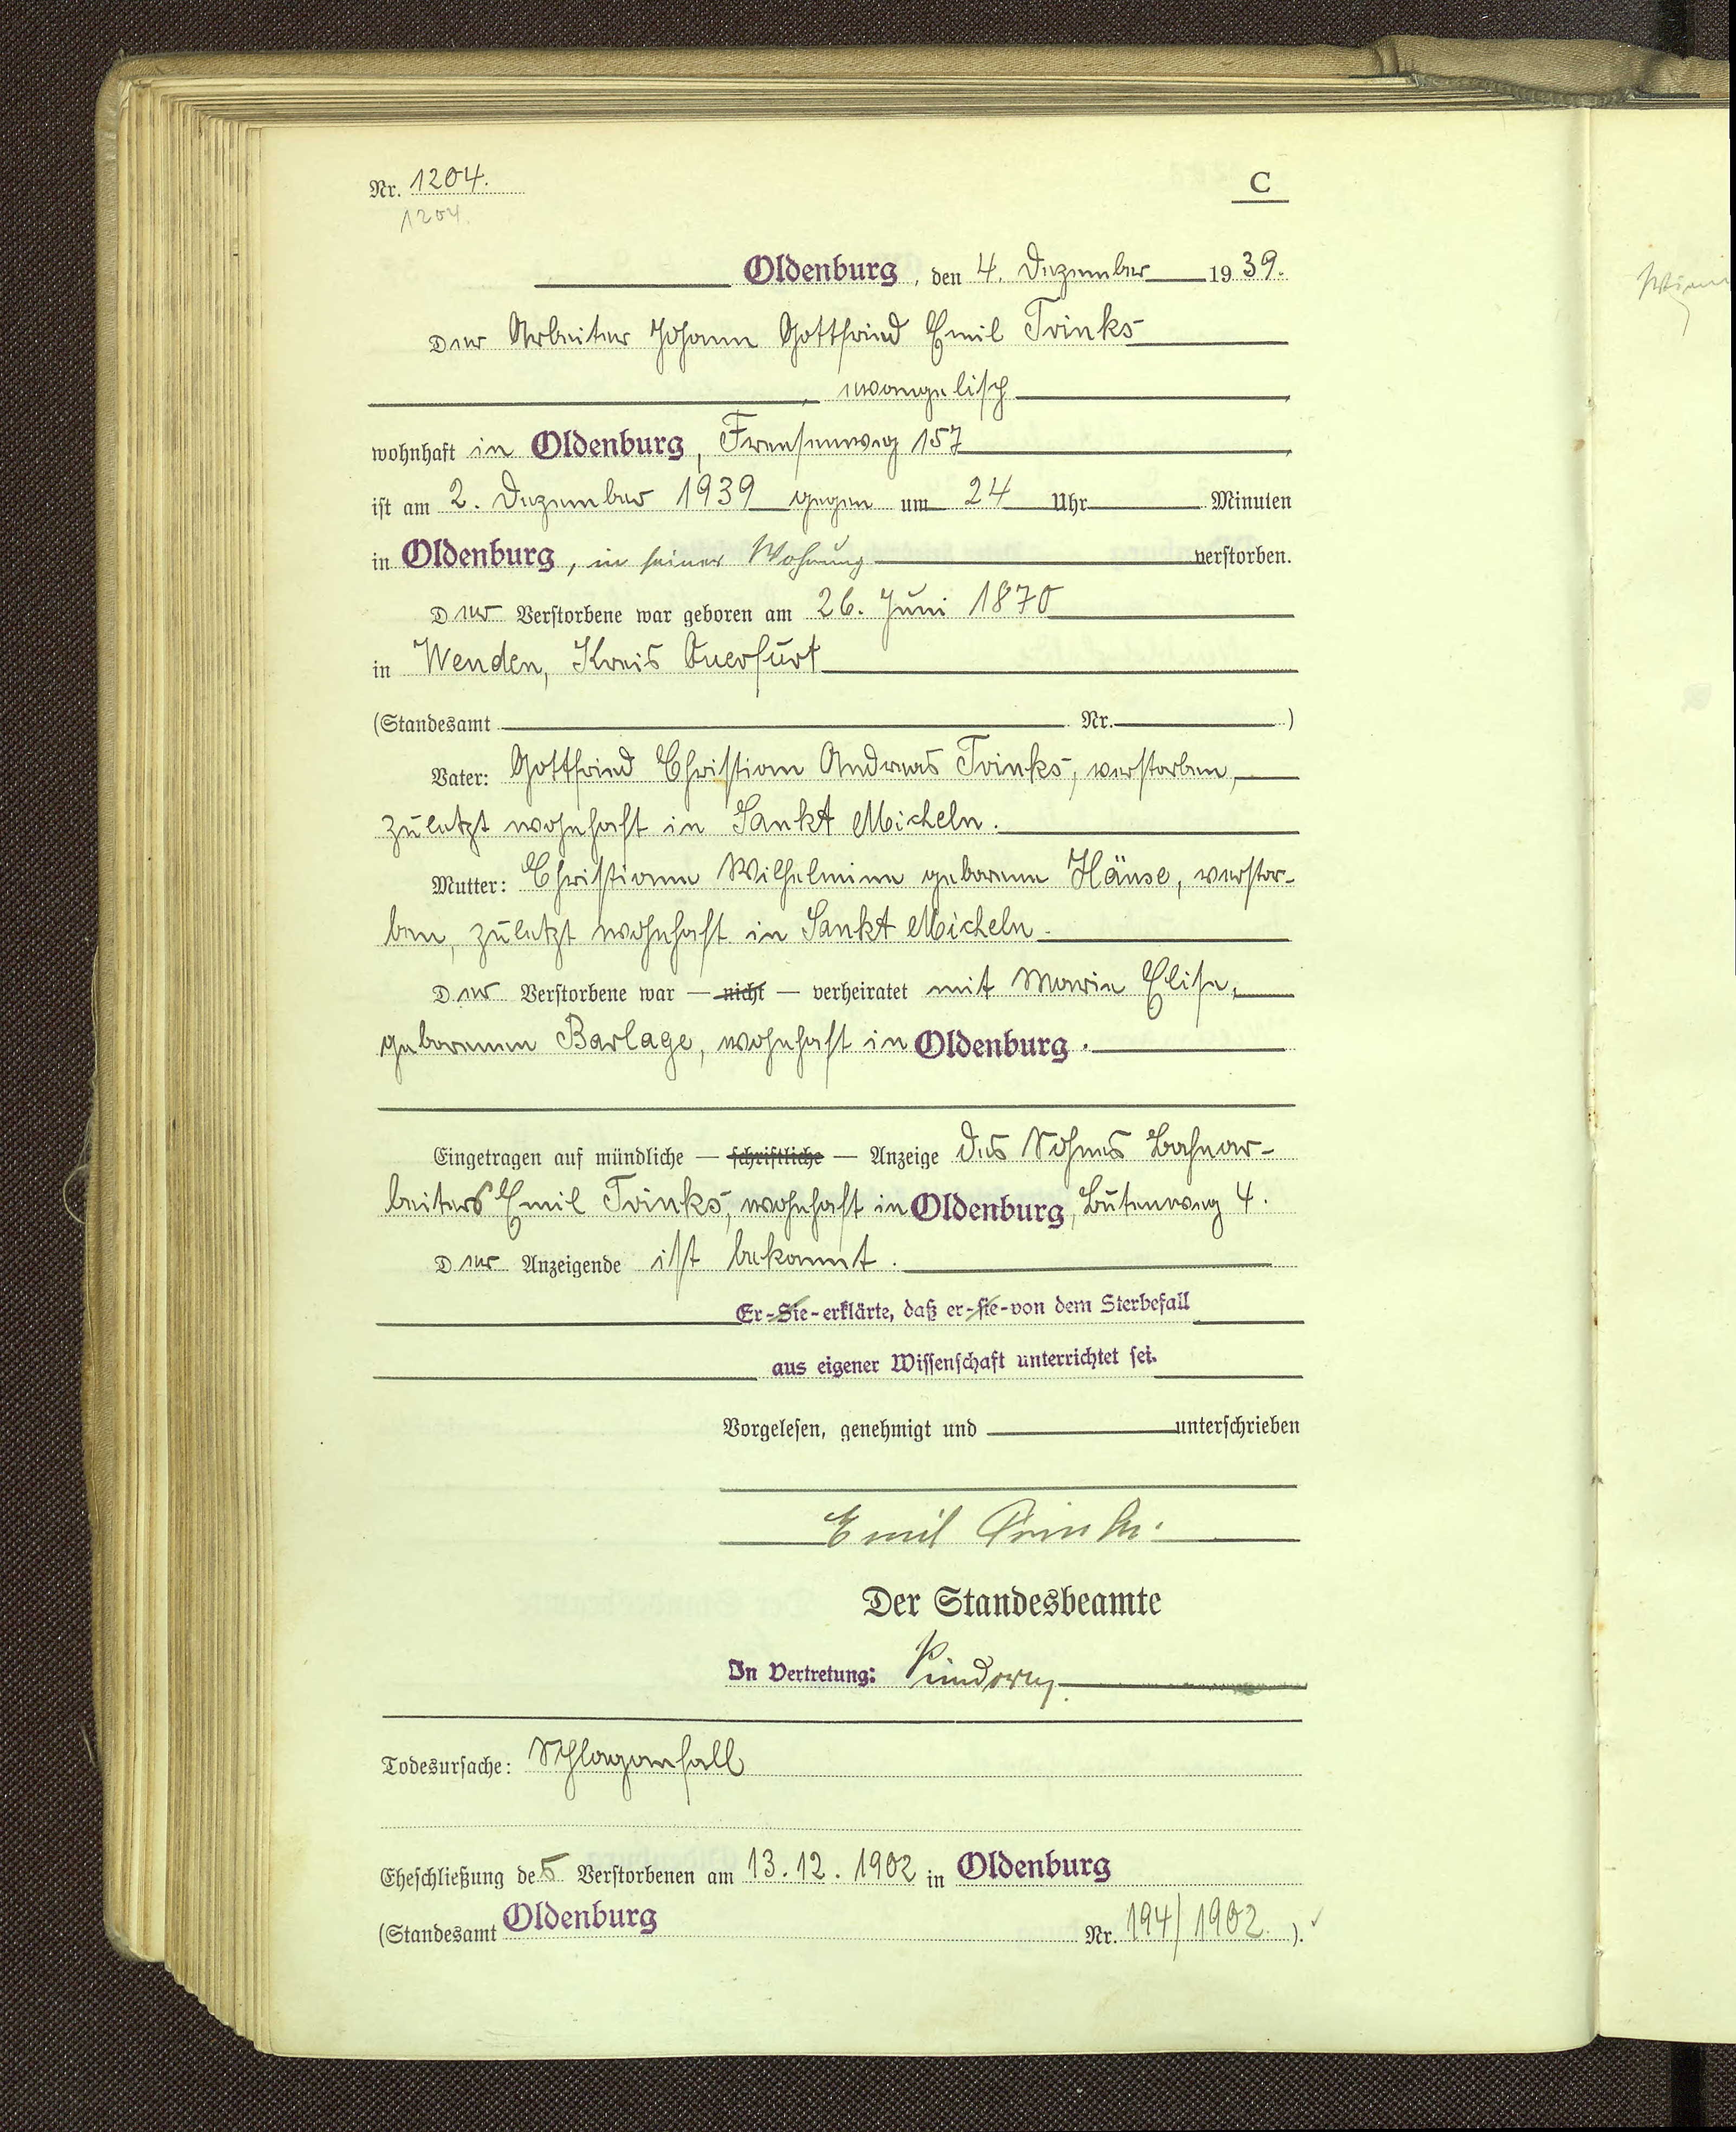 Nr. 1204.
1204.
C
Oldenburg, den 4. Dezember 1939.
Der Arbeiter Johann Gottfried Emil Trinks
, evangelisch
wohnhaft in Oldenburg, Friesenweg 157
ist am 2. Dezember 1939 gegen um 24 Uhr Minuten
in Oldenburg, in seiner Wohnung verstorben.
Der Verstorbene war geboren am 26. Juni 1870
in Wenden, Kreis Querfurt
(Standesamt Nr. )
Vater: Gottfried Christian Andreas Trinks, verstorben,
zuletzt wohnhaft in Sankt Micheln.
Mutter: Christiane Wilhelmine geborene Hänse, verstor-
ben, zuletzt wohnhaft in Sankt Micheln.
Der Verstorbene war — nicht — verheiratet mit Marie Elise,
geborenen Barlage, wohnhaft in Oldenburg.
Eingetragen auf mündliche — schriftliche — Anzeige des Sohnes Bahnar-
beiters Emil Trinks, wohnhaft in Oldenburg, Butenweg 4.
Der Anzeigende ist bekannt.
Er-Sie-erklärte, daß er-sie-von dem Sterbefall
aus eigener Wissenschaft unterrichtet sei.
Vorgelesen, genehmigt und unterschrieben
Emil Trinks.
Der Standesbeamte
In Vertretung:
Todesursache: Schlaganfall
Eheschließung des Verstorbenen am 13.12.1902 in Oldenburg
(Standesamt Oldenburg Nr. 194/1902.).